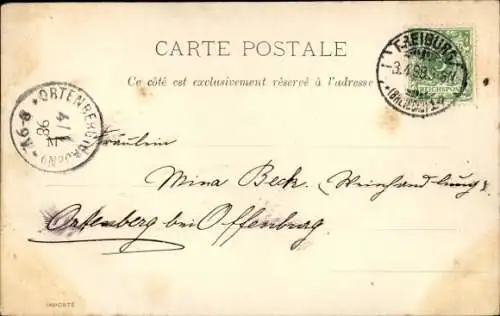 CARTE POSTALE
Ce côté est exclusivement réservé à l'adresse
FREIBURG
3.4.98
(BREISGAU)
REICHSPOST
ORTENBERG
4
98
Fräulein
Mina Beck. (Weinhandlung)
Ortenberg bei Offenburg.
IMPORTÉ